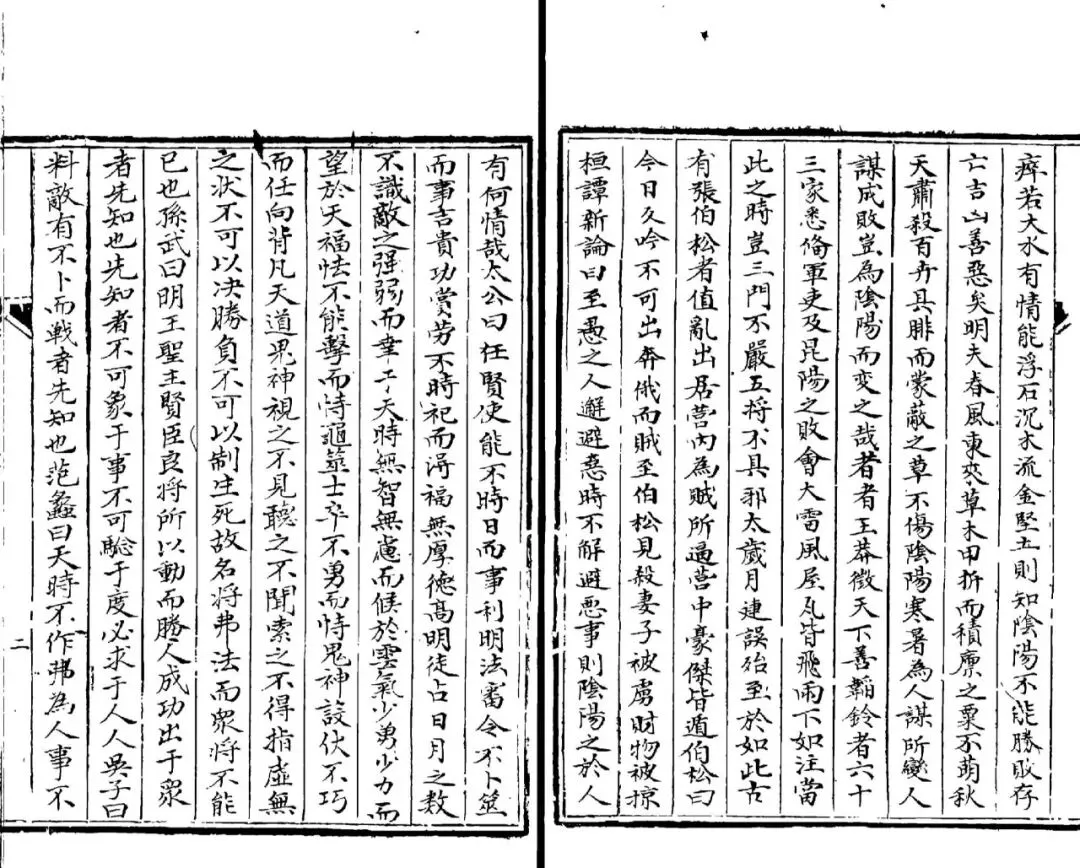 痺若大水有情能浮石沉木流金堅土則知陰陽不能勝敗存
亡吉凶善惡矣明夫春風東來草木甲折而積廪之粟不萌秋
天肅殺百卉具腓而蒙蔽之草不傷陰陽寒暑為人謀所變人
謀成敗豈為陰陽而变之哉者者王莽徵天下善韜鈴者六十
三家悉俻軍吏及昆陽之敗會大雷風屋瓦皆飛雨下如注當
此之時豈三門不嚴五将不具邪太歲月建誤殆至於如此古
有張伯松者值亂出居营内為賊所逼营中豪傑皆遁伯松曰
今日久吟不可出奔俄而賊至伯松見殺妻子被虜財物被掠
桓譚新論曰至愚之人解避惡時不解避悪事則陰陽之於人
有何情哉太公曰任賢使能不時日而事利明法審令不卜筮
而事吉貴功賞劳不時祀而淂福無厚德髙明徒占日月之数
不識敵之强弱而幸于天時無智無慮而候於雲氣少勇少力而
望於天福怯不能擊而恃龜筮士卒不勇而恃鬼神設伏不巧
而任向背凡天道鬼神視之不見聽之不聞索之不得指虛無
之状不可以决勝負不可以制生死故名将弗法而衆将不能
已也孫武曰明王聖主賢臣良将所以動而勝人成功出于衆
者先知也先知者不可象于事不可驗于度必求于人人吳子曰
料敵有不卜而戰者先知也范蠡曰天時不作弗為人事不
二